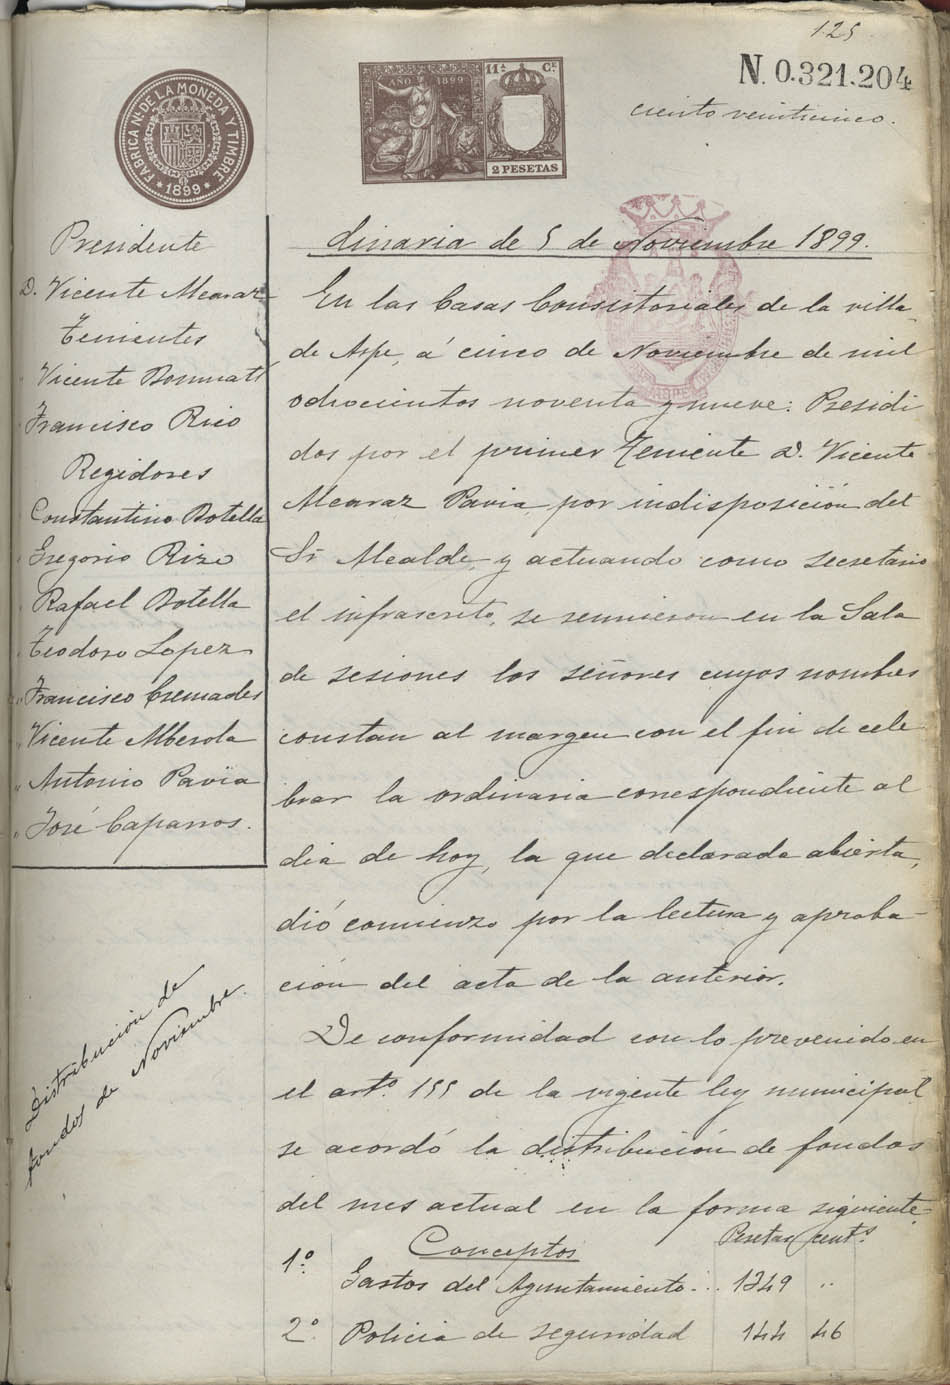 125
N. 0.321.204
ciento veinticinco.
FABRICA N.L DE LA MONEDA Y TIMBRE
1899
AÑO 1899
11.A CE
2 PESETAS
Presidente
D. Vicente Alcaraz
Tenientes
" Vicente Bonmatí
" Francisco Rico
Regidores
" Constantino Botella
" Gregorio Rizo
" Rafael Botella
" Teodoro Lopez
" Francisco Cremades
" Vicente Alberola
" Antonio Pavía
" José Caparros.
dinaria de 5 de Noviembre 1899.
En las Casas Consistoriales de la villa
de Aspe, á cinco de Noviembre de mil
ochocientos noventa y nueve: Presidi
dos por el primer Teniente D. Vicente
Alcaraz Pavia, por indisposición del
Sr Alcalde, y actuando como secretario
el infrascrito, se reunieron en la Sala
de sesiones los señores cuyos nombres
constan al margen con el fin de cele
brar la ordinaria correspondiente al
dia de hoy, la que declarada abierta,
dió comienzo por la lectura y aproba-
ción del acta de la anterior.
Distribución de
fondos de Noviembre.
De conformidad con lo prevenido en
el artº. 155 de la vigente ley municipal
se acordó la distribución de fondos
del mes actual en la forma siguiente.
Conceptos Pesetas cents.
1º. Gastos del Ayuntamiento... 1349 "
2º. Policia de seguridad 144 46